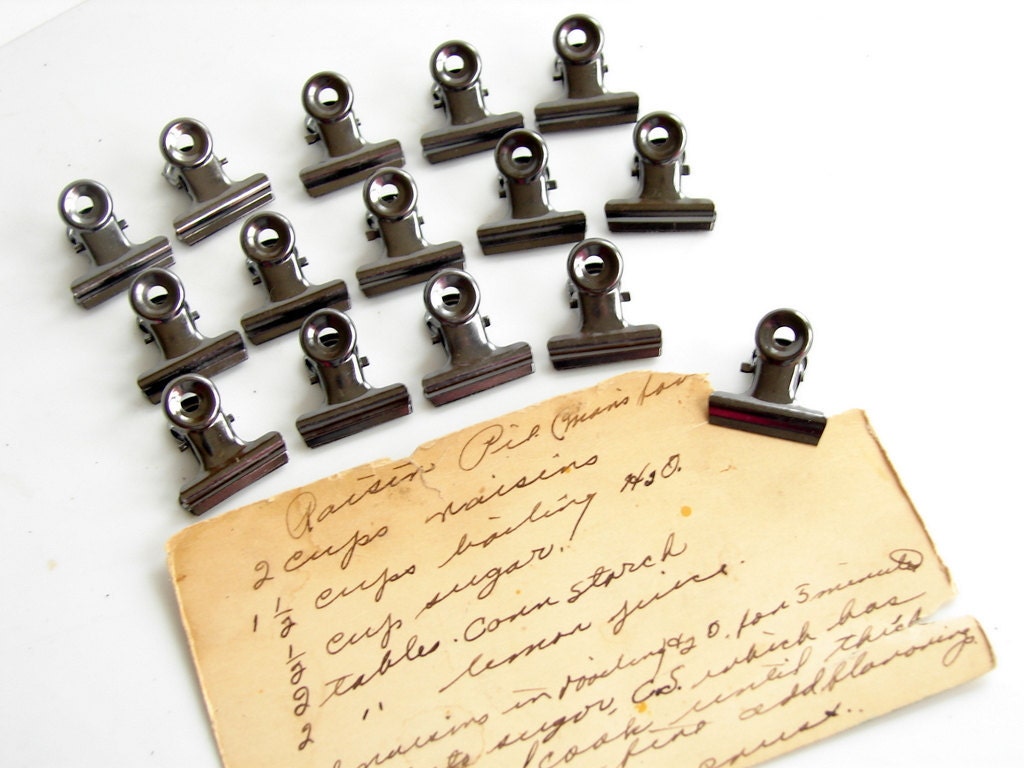 Raisin Pie
2 cups raisins
1 1/2 cups boiling H2O.
1/2 cup sugar.
2 tables. Corn Starch
2 " lemon juice.
raisins in boiling H2O. for 5 minutes
sugar, C.S. which has
cook until thick
add flavoring.
crust..